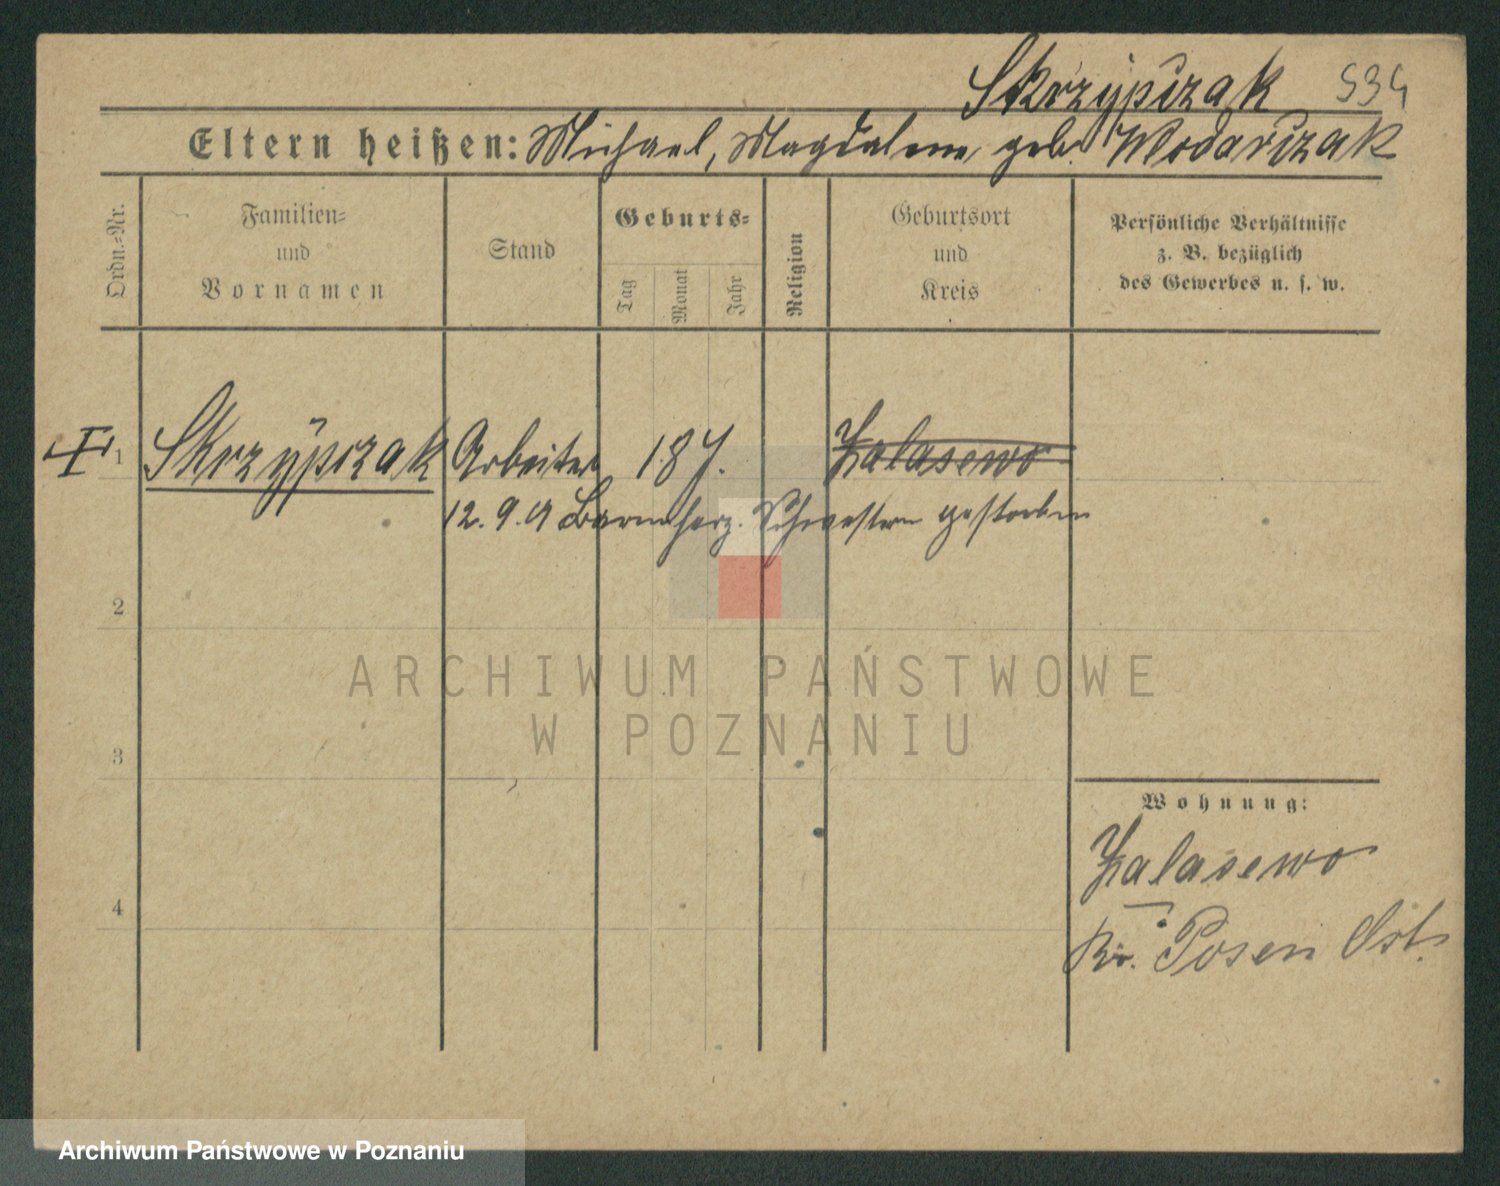 Skrzypczak 534
Eltern heißen: Michael, Magdalena geb. Wodarczak
Ordn.-Nr.
Familien-
und
Vornamen
Stand
Geburts-
Tag
Monat
Jahr
Religion
Geburtsort
und
Kreis
Persönliche Verhältnisse
z. B. bezüglich
des Gewerbes u. s. w.
1 Skrzypczak Arbeiter 18 J. Zalasewo
12. 9. 01 Barmherz. Schwestern gestorben
2
3
4
Wohnung:
Zalasewo
Kr. Posen Ost.
ARCHIWUM PAŃSTWOWE
W POZNANIU
Archiwum Państwowe w Poznaniu